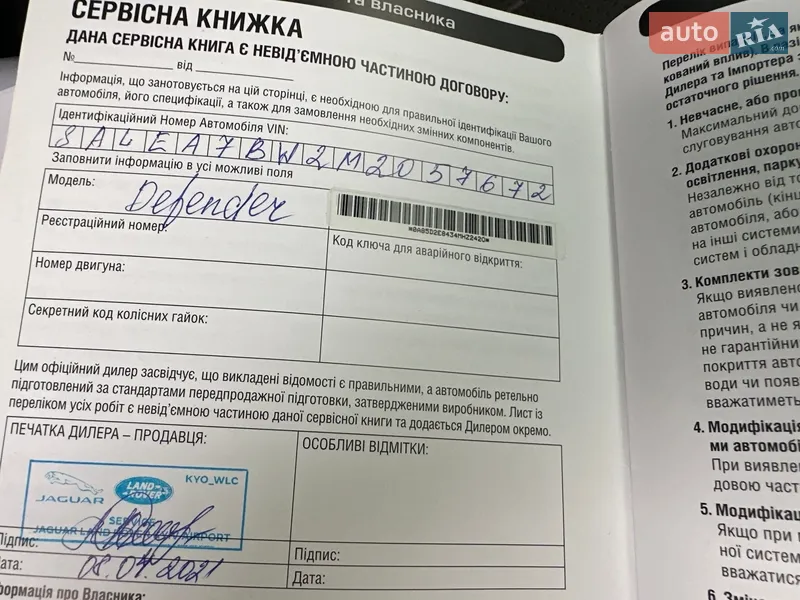 та власника
СЕРВІСНА КНИЖКА
ДАНА СЕРВІСНА КНИГА Є НЕВІД'ЄМНОЮ ЧАСТИНОЮ ДОГОВОРУ:
№ від
Інформація, що занотовується на цій сторінці, є необхідною для правильної ідентифікації Вашого
автомобіля, його специфікації, а також для замовлення необхідних змінних компонентів.
Ідентифікаційний Номер Автомобіля VIN:
SALEA7BW2M2057672
Заповнити інформацію в усі можливі поля
Модель: Defender
*0A85D2E8434MHZ2420*
Реєстраційний номер:
Код ключа для аварійного відкриття:
Номер двигуна:
Секретний код колісних гайок:
Цим офіційний дилер засвідчує, що викладені відомості є правильними, а автомобіль ретельно
підготовлений за стандартами передпродажної підготовки, затвердженими виробником. Лист із
переліком усіх робіт є невід'ємною частиною даної сервісної книги та додається Дилером окремо.
ПЕЧАТКА ДИЛЕРА – ПРОДАВЦЯ:
ОСОБЛИВІ ВІДМІТКИ:
KYO_WLC
JAGUAR
LAND-
ROVER
SERVICE
JAGUAR LAND ROVER AIRPORT
Підпис:
Дата: 08.04.2021
Підпис:
Дата:
Інформація про Власника:
auto RIA.com
кований вплив).
Дилера та Імпортера з
остаточного рішення.
1. Невчасне, або
Максимальний
слуговування авто
2. Додаткові
освітлення,
Незалежно від
автомобіль
автомобіля, або
на інші системи
систем і
3. Комплекти
Якщо виявлено
автомобіля чи
причин, а не
не гарантійни
покриття авто
води чи
вважатиметь
4. Модифікація
ми автомобі
При виявлен
довою част
5. Модифікац
Якщо при
ної систем
вважатися
6.